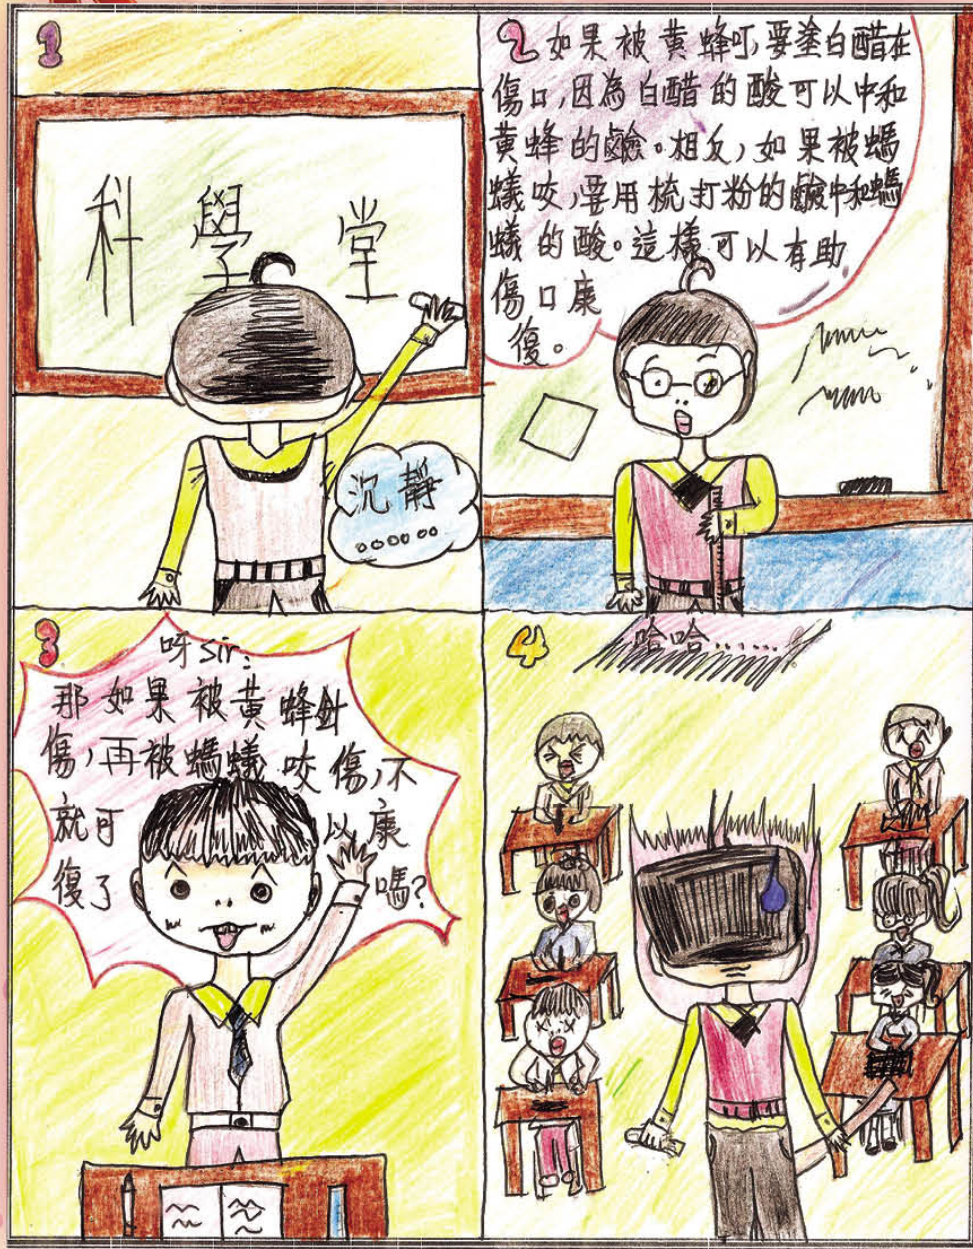 1
科學堂
沉靜
。。。。。。
2 如果被黃蜂叮,要塗白醋在
傷口,因為白醋的酸可以中和
黃蜂的鹼。相反,如果被螞
蟻咬,要用梳打粉的鹼中和螞
蟻的酸。這樣可以有助
傷口康
復。
3
呀sir:
那如果被黃蜂針
傷,再被螞蟻咬傷,不
就可以康
復了嗎?
4
哈哈......